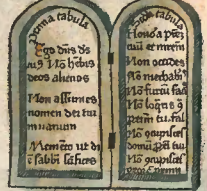 Prima tabula
Ego dns ds
tuus Nō hebis
deos alienos
Non assumes
nomen dei tui
in uanum
Memēto ut di
ē sabbi sctifices
Scda tabula
Honora prēz
tuū et mrem
Non occides
Nō mechab
Nō furtū fac
Nō loqns
pxim tu fal
Nō cupisces
domū tui
Nō cupisces